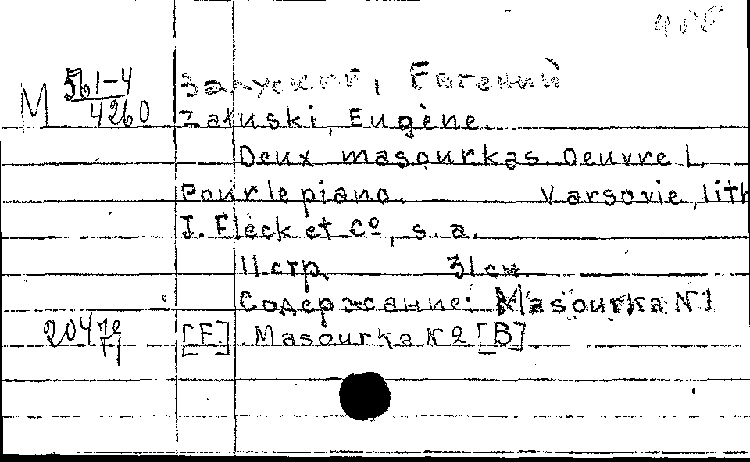 М 561-4
4260
Залуский, Евгений
Załuski, Eugène.
Deux masourkas. Oeuvre 1.
Pour le piano. Varsovie, lith
J. Fleck et Cº, s. a.
11 стр. 31 см
Содержание: Masourka N1
[F] Masourka N2 [B]
204